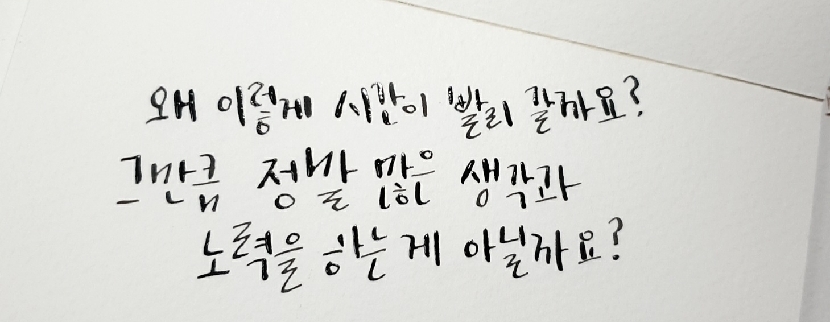 왜 이렇게 시간이 빨리 갈까요?
그만큼 정말 많은 생각과
노력을 하는 게 아닐까요?